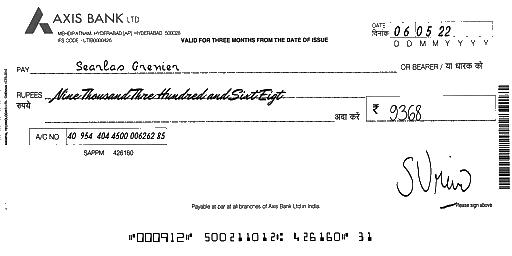 AXIS BANK LTD
MEHDIPATNAM, HYDERABAD (AP) - HYDERABAD 500028
IFS CODE - UTIB0000426
VALID FOR THREE MONTHS FROM THE DATE OF ISSUE
DATE
दिनांक 06 05 22
D D M M Y Y Y Y
PAY Searlas Grenier OR BEARER / या धारक को
RUPEES Nine Thousand Three Hundred and Sixt Eigt
रुपये
अदा करें ₹ 9368
A/C NO 40 954 404 4500 006262 85
SAPPM 426160
Please sign above
Payable at par at all branches of Axis Bank Ltd in India.
"000912" 500211012: 426160" 31